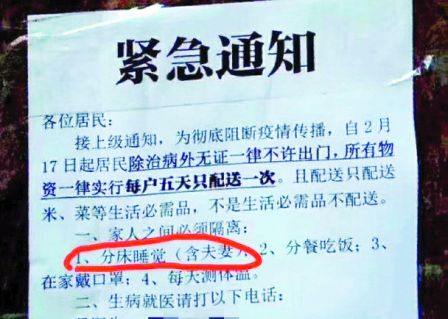 紧急通知
各位居民：
接上级通知，为彻底阻断疫情传播，自2月
17日起居民除治病外无证一律不许出门，所有物
资一律实行每户五天只配送一次。且配送只配送
米、菜等生活必需品，不是生活必需品不配送。
一、家人之间必须隔离：
1、分床睡觉（含夫妻）；2、分餐吃饭；3、
在家戴口罩；4、每天测体温。
二、生病就医请打以下电话：